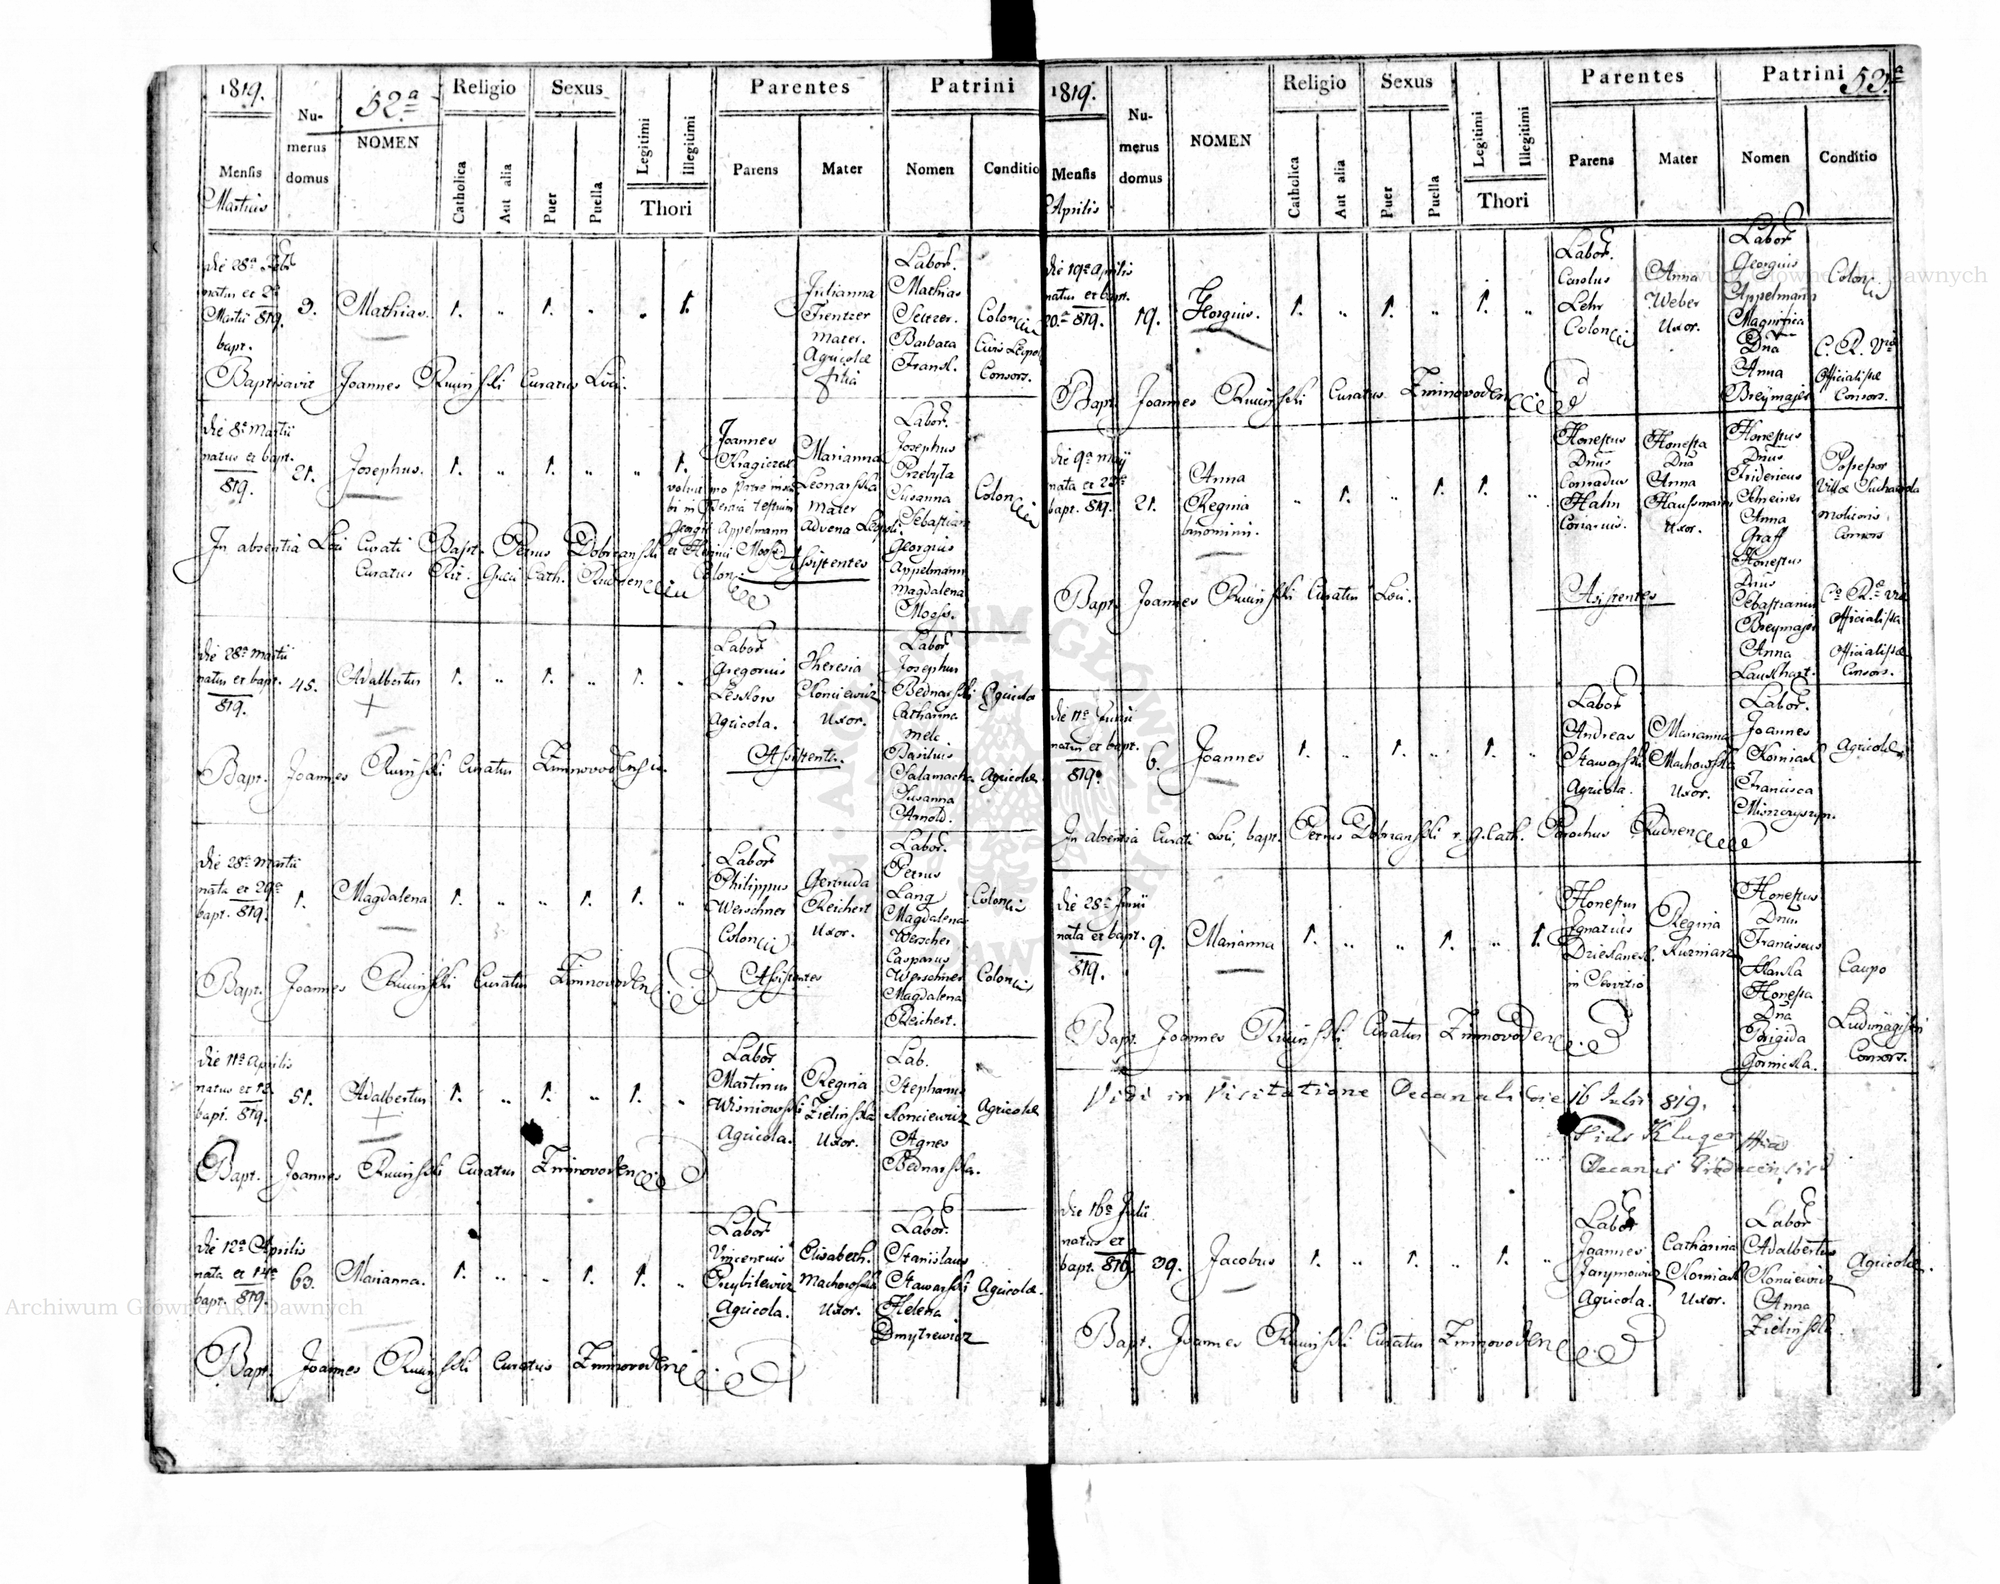 1819.
52ª
Numerus domus
NOMEN
Religio
Sexus
Parentes
Patrini
Mensis
Martius
Catholica
Aut alia
Puer
Puella
Legitimi
Illegitimi
Thori
Parens
Mater
Nomen
Conditio
die 28ª Febr
natus et 2ª
Martii 819.
bapt.
3.
Mathias.
1.
"
1.
"
"
1.
Julianna
Frentzer
Mater.
Agricolæ
filia
Labor.
Mathias
Seltzer.
Barbara
Fransk.
Colon
Civis Leopol
Consors.
Baptisavit Joannes Ruwinski Curatus Loci.
die 8ª Martii
natus et bapt.
819.
21.
Josephus.
1.
"
1.
"
"
1.
Joannes
Marianna
Leonarska
Mater
Advena Leopoli.
Georgii Appelmann
et Henrici Mooss
Colon.
Assistentes
Labor.
Josephus
Przebyla
Susanna
Sebastian
Georgius
Appelmann
Magdalena
Mooss.
Colon
In absentia Loci Curati Bapt. Petrus Dobrzanski
Curatus Rit. Græci Cath. Rudnen
die 28ª Martii
natus et bapt.
819.
45.
Adalbertus
1.
"
1.
"
1.
"
Labor
Gregorius
Lesskow
Agricola.
Theresia
Konciewicz
Uxor.
Assistente.
Labor
Josephus
Bednarski
Catharina
Melc
Basilius
Salamacha
Susanna
Arnold.
Agricolæ
Agricolæ
Bapt. Joannes Ruwinski Curatus Zimnovodensis
die 28ª Martii
nata et 29ª
bapt. 819.
1.
Magdalena
1.
"
"
1.
1.
"
Labor
Philippus
Werschner
Colon
Gertruda
Reichert
Uxor.
Assistentes
Labor.
Petrus
Lang
Magdalena
Werscher
Casparus
Werschner
Magdalena
Reichert.
Colon
Colon
Bapt. Joannes Ruwinski Curatus Zimnovoden
die 11ª Aprilis
natus et 13.
bapt. 819.
51.
Adalbertus
1.
"
1.
"
1.
"
Labor
Martinus
Wisniowski
Agricola.
Regina
Zielinska
Uxor.
Lab.
Stephanus
Konciewicz
Agnes
Bednarska.
Agricolæ
Bapt. Joannes Ruwinski Curatus Zimnovoden
die 12ª Aprilis
nata et 14ª
bapt. 819.
63.
Marianna.
1.
"
"
1.
1.
"
Labor
Vincentius
Przybilewicz
Agricola.
Elisabeth.
Machowska
Uxor.
Labor.
Stanislaus
Stawarski
Helena
Dmytrewicz
Agricolæ.
Bapt. Joannes Ruwinski Curatus Zimnovoden
1819.
53.ª
Numerus domus
NOMEN
Religio
Sexus
Parentes
Patrini
Mensis
Aprilis
Catholica
Aut alia
Puer
Puella
Legitimi
Illegitimi
Thori
Parens
Mater
Nomen
Conditio
die 19ª Aprilis
natus et bapt.
20.ª 819.
19.
Georgius.
1.
"
1.
"
1.
"
Labor.
Carolus
Lehr
Colon
Anna
Weber
Uxor.
Labor
Georgius
Appelmann
Magnifica
Dna
Anna
Breymajer
Colon
C. R. Via
Officialissæ
Consors.
Bapt. Joannes Ruwinski Curatus Zimnovoden
die 9ª Maÿ
nata et 23ª
bapt. 819.
21.
Anna
Regina
binomini.
"
1.
"
1.
1.
"
Honestus
Dnus
Conradus
Hahn
Coriarius.
Honesta
Dna
Anna
Haussmann
Uxor.
Assistentes
Honestus
Dnus
Fridericus
Schreiner
Anna
Graff
Honestus
Dnus
Sebastianus
Breymajer
Anna
Lauskhart.
Possessor
Villæ Suchawola
Molitoris
Consors
Officialista
Officialistæ
Consors.
Bapt. Joannes Ruwinski Curatus Loci.
die 11ª Junii
natus et bapt.
819.
6.
Joannes
1.
"
1.
"
1.
"
Labor
Andreas
Stawarski
Agricola.
Marianna
Machowska
Uxor.
Labor.
Joannes
Korniak
Francisca
Agricolæ
In absentia Curati Loci, bapt. Petrus Dobrzanski r. g. Cath. Parochus Rudnen
die 28ª Junii
nata et bapt.
819.
9.
Marianna
1.
"
"
1.
"
1.
Honestus
Ignatius
in Servitio
Regina
Kuzniarz
Honestus
Dnus
Franciscus
Hanka
Honesta
Dna
Brigida
Gornicka.
Caupo
Ludimagistri
Consors.
Bapt. Joannes Ruwinski Curatus Zimnovoden
Vidi in Visitatione Decanali die 16 Julii 819.
Pius Kluger
Decanus
die 16ª Julii
natus et
bapt. 819.
39.
Jacobus
1.
"
1.
"
1.
"
Labor
Joannes
Jarymowicz
Agricola.
Catharina
Korniak
Uxor.
Labor
Adalbertus
Konciewicz
Anna
Zielinska.
Agricolæ.
Bapt. Joannes Ruwinski Curatus Zimnovoden
Archiwum Główne Akt Dawnych
Archiwum Główne Akt Dawnych